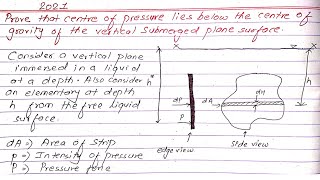 2021
Prove that centre of pressure lies below the centre of
gravity of the vertical submerged plane surface.
Consider a vertical plane
immersed in a liquid
at a depth. Also consider
an elementary at depth
h from the free liquid
surface.
dA => Area of strip
p => Intensity of pressure
P => Pressure force
h*
dP
P
edge view
dA
dH
h
side view